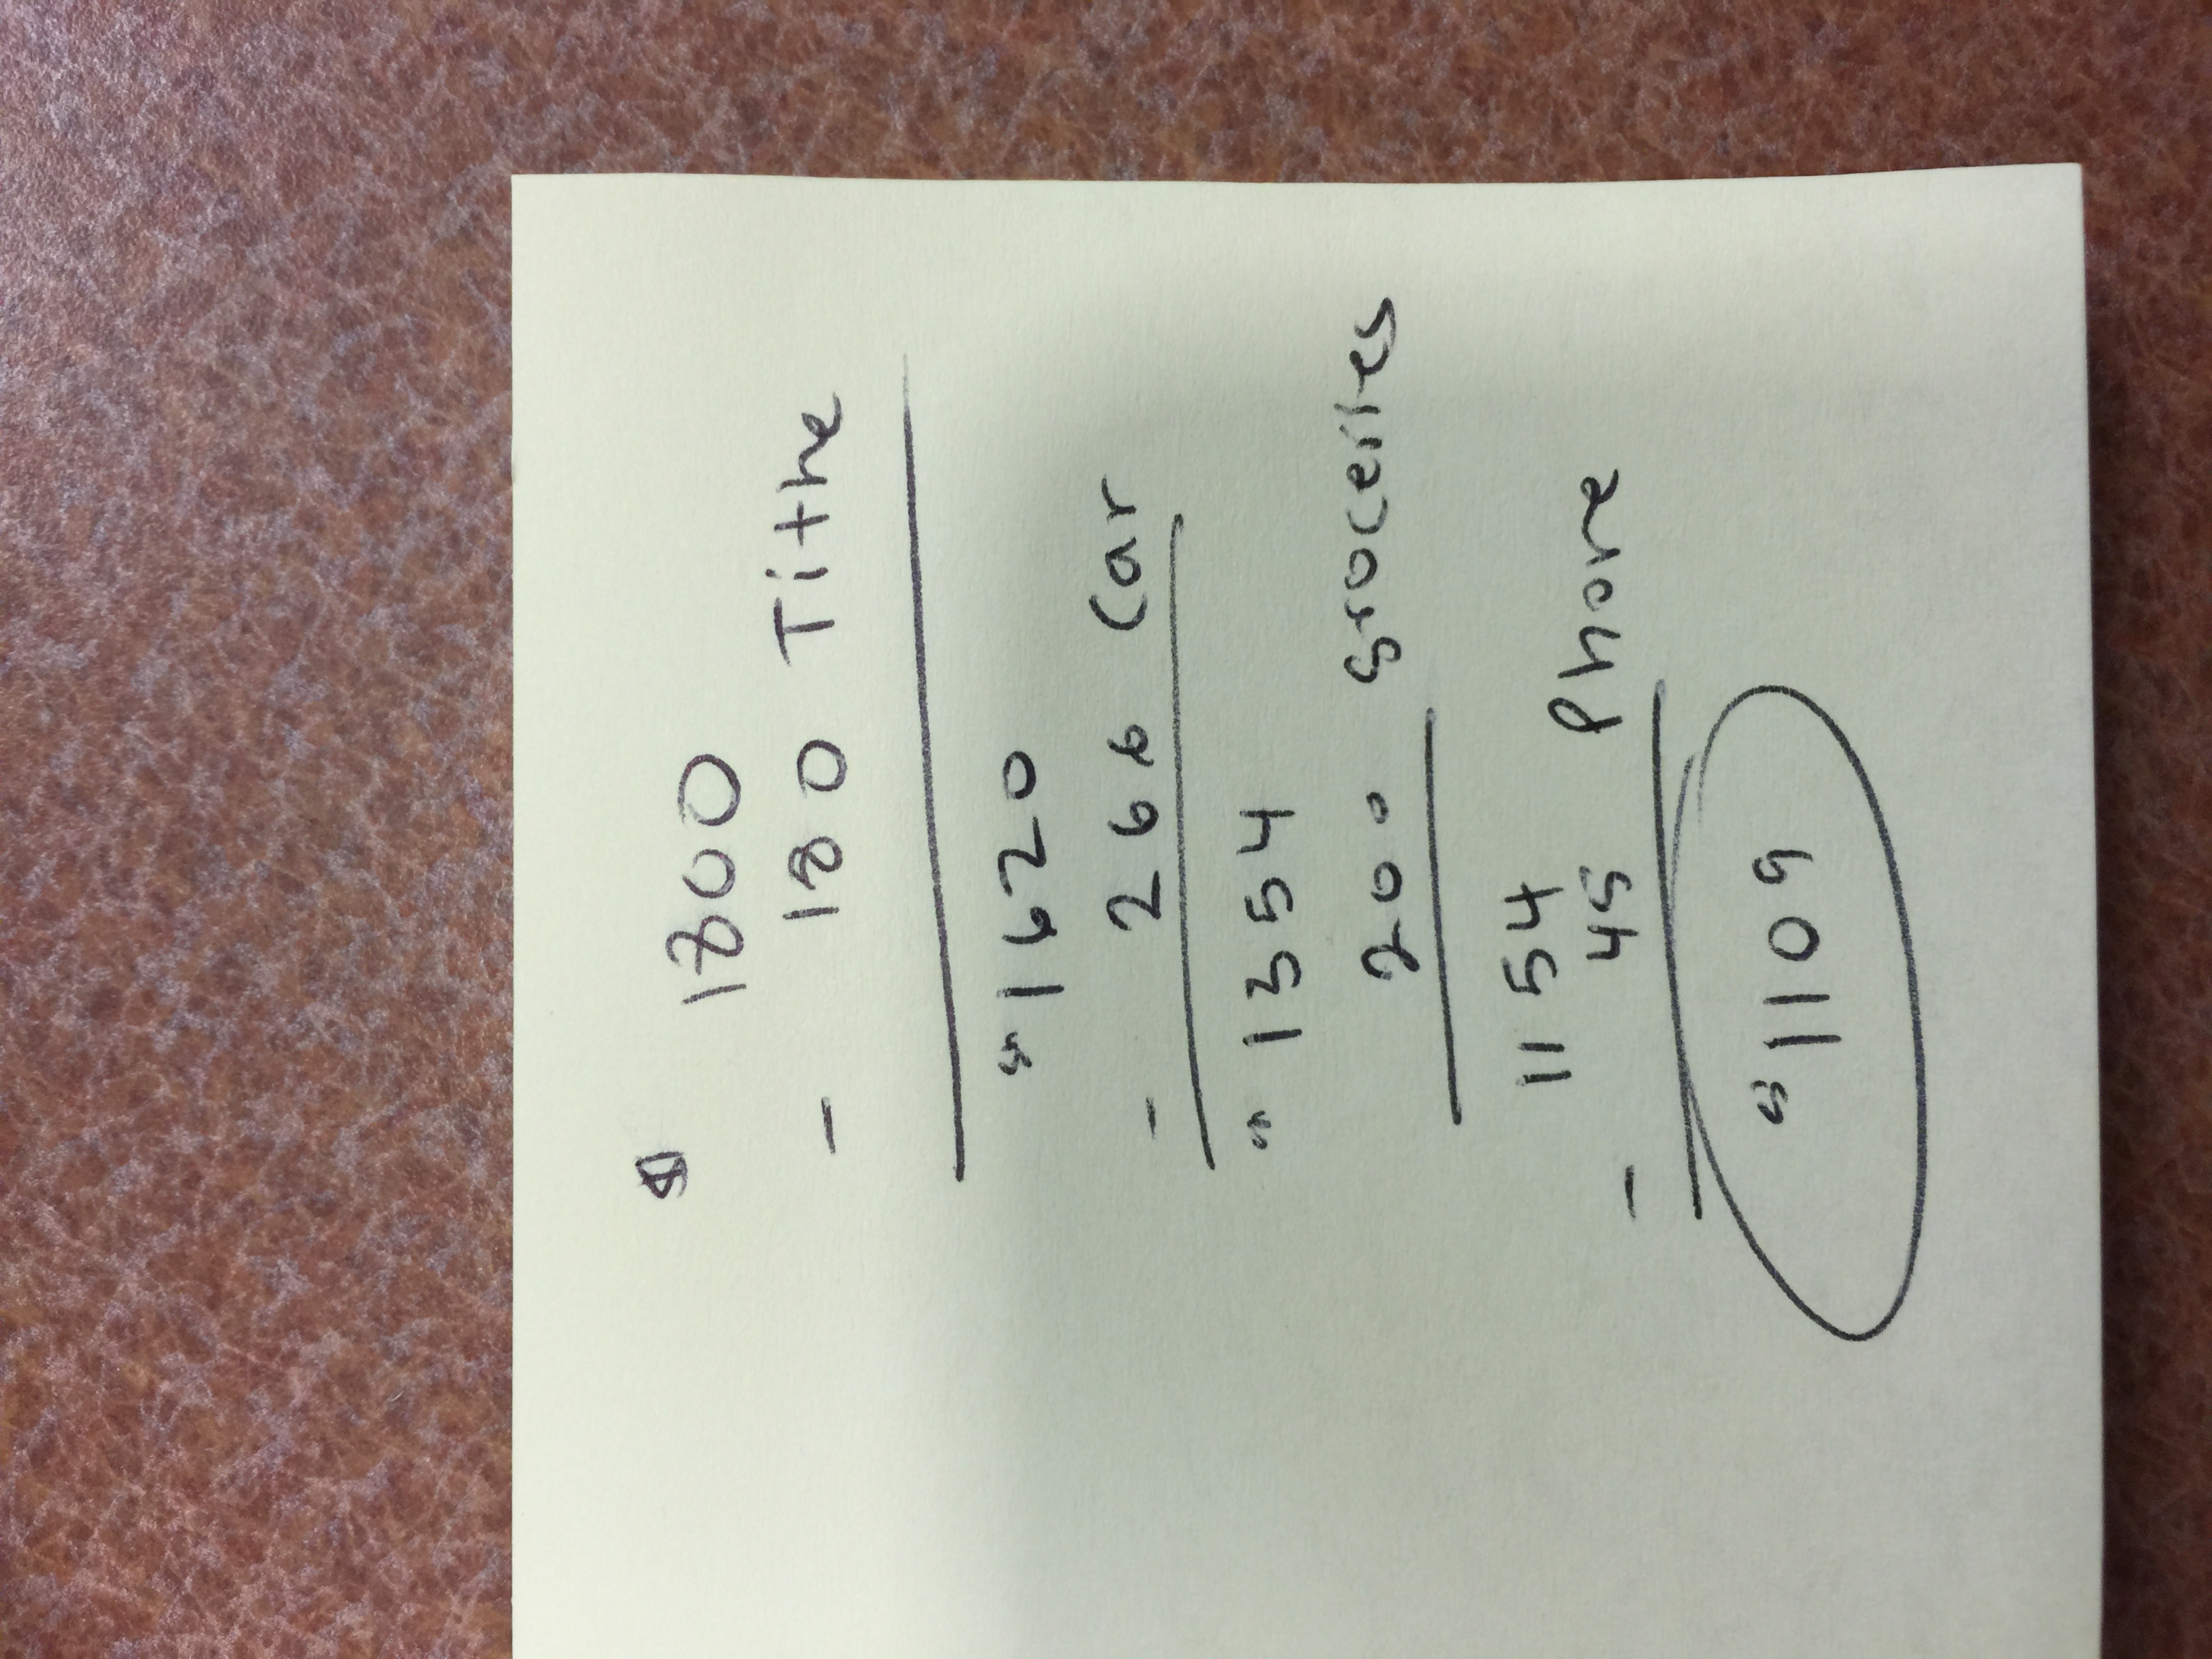 $ 1800
- 180 Tithe
$1620
- 266 Car
$ 1354
200 groceries
1154
- 45 Phone
$1109